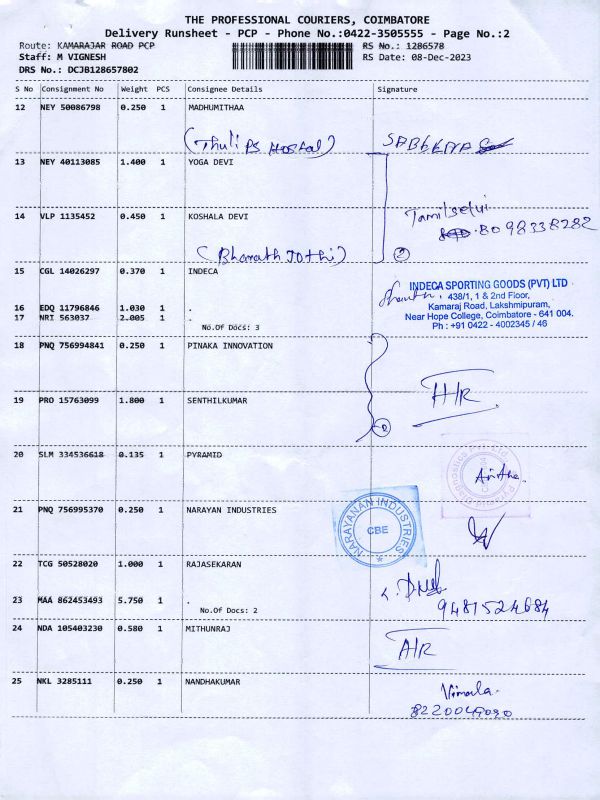 THE PROFESSIONAL COURIERS, COIMBATORE
Delivery Runsheet - PCP - Phone No.:0422-3505555 - Page No.:2
Route: KAMARAJAR ROAD PCP RS No.: 1286578
Staff: M VIGNESH RS Date: 08-Dec-2023
DRS No.: DCJB128657802
S No Consignment No Weight PCS Consignee Details Signature
12 NEY 50086798 0.250 1 MADHUMITHAA
(Thulips Hostal)
13 NEY 40113085 1.400 1 YOGA DEVI
Tamilselvi
8098338282
14 VLP 1135452 0.450 1 KOSHALA DEVI
(Bharath Jothi) 2
15 CGL 14026297 0.370 1 INDECA
INDECA SPORTING GOODS (PVT) LTD
438/1, 1 & 2nd Floor,
Kamaraj Road, Lakshmipuram,
Near Hope College, Coimbatore - 641 004.
Ph : +91 0422 - 4002345 / 46
16 EDQ 11796846 1.030 1 .
17 NRI 563037 2.005 1 .
No.Of Docs: 3
18 PNQ 756994841 0.250 1 PINAKA INNOVATION
19 PRO 15763099 1.800 1 SENTHILKUMAR
20 SLM 334536618 0.135 1 PYRAMID
21 PNQ 756995370 0.250 1 NARAYAN INDUSTRIES
NARAYANAN INDUSTRIES
CBE
22 TCG 50528020 1.000 1 RAJASEKARAN
23 MAA 862453493 5.750 1 .
No.Of Docs: 2
9481524684
24 NDA 105403230 0.580 1 MITHUNRAJ
A/R
25 NKL 3285111 0.250 1 NANDHAKUMAR
Vimala.